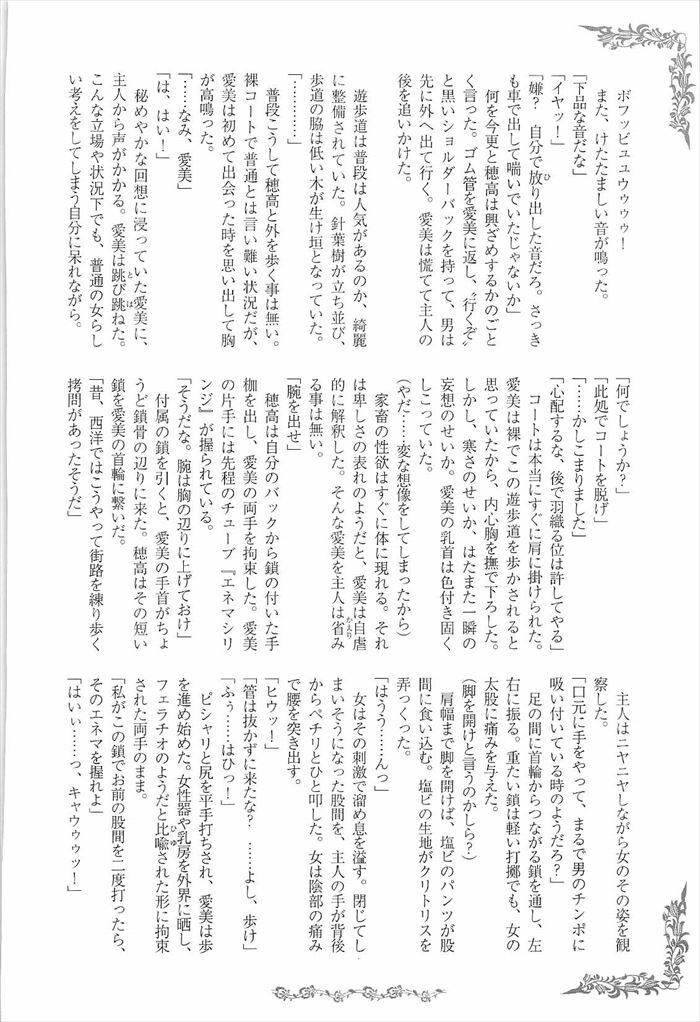 ボフッビュユウゥゥゥ!
また、けたたましい音が鳴った。
「下品な音だな」
「イヤッ!」
「嫌? 自分で放り出した音だろ。さっき
も車で出して喘いでいたじゃないか」
何を今更と穂高は興ざめするかのごと
く言った。ゴム管を愛美に返し、〝行くぞ〟
と黒いショルダーバックを持って、男は
先に外へ出て行く。愛美は慌てて主人の
後を追いかけた。
遊歩道は普段は人気があるのか、綺麗
に整備されていた。針葉樹が立ち並び、
歩道の脇は低い木が生け垣となっていた。
「…………」
普段こうして穂高と外を歩く事は無い。
裸コートで普通とは言い難い状況だが、
愛美は初めて出会った時を思い出して胸
が高鳴った。
「……なみ、愛美」
「は、はい!」
秘めやかな回想に浸っていた愛美に、
主人から声がかかる。愛美は跳び跳ねた。
こんな立場や状況下でも、普通の女らし
い考えをしてしまう自分に呆れながら。
「何でしょうか?」
「此処でコートを脱げ」
「……かしこまりました」
「心配するな、後で羽織る位は許してやる」
コートは本当にすぐに肩に掛けられた。
愛美は裸でこの遊歩道を歩かされると
思っていたから、内心胸を撫で下ろした。
しかし、寒さのせいか、はたまた一瞬の
妄想のせいか。愛美の乳首は色付き固く
しこっていた。
(やだ……変な想像をしてしまったから)
家畜の性欲はすぐに体に現れる。それ
は卑しさの表れのようだと、愛美は自虐
的に解釈した。そんな愛美を主人は省み
る事は無い。
「腕を出せ」
穂高は自分のバックから鎖の付いた手
枷を出し、愛美の両手を拘束した。愛美
の片手には先程のチューブ『エネマシリ
ンジ』が握られている。
「そうだな。腕は胸の辺りに上げておけ」
付属の鎖を引くと、愛美の手首がちょ
うど鎖骨の辺りに来た。穂高はその短い
鎖を愛美の首輪に繋いだ。
「昔、西洋ではこうやって街路を練り歩く
拷問があったそうだ」
主人はニヤニヤしながら女のその姿を観
察した。
「口元に手をやって、まるで男のチンポに
吸い付いている時のようだろ?」
足の間に首輪からつながる鎖を通し、左
右に振る。重たい鎖は軽い打擲でも、女の
太股に痛みを与えた。
(脚を開けと言うのかしら?)
肩幅まで脚を開けば、塩ビのパンツが股
間に食い込む。塩ビの生地がクリトリスを
弄っくった。
「はうう……んっ」
女はその刺激で溜め息を溢す。閉じてし
まいそうになった股間を、主人の手が背後
からペチリとひと叩した。女は陰部の痛み
で腰を突き出す。
「ヒウッ!」
「管は抜かずに来たな? ……よし、歩け」
「ふぅ……はひっ!」
ピシャリと尻を平手打ちされ、愛美は歩
を進め始めた。女性器や乳房を外界に晒し、
フェラチオのようだと比喩された形に拘束
された両手のまま。
「私がこの鎖でお前の股間を二度打ったら、
そのエネマを握れよ」
「はいぃ……っ、キャウゥゥッ!」